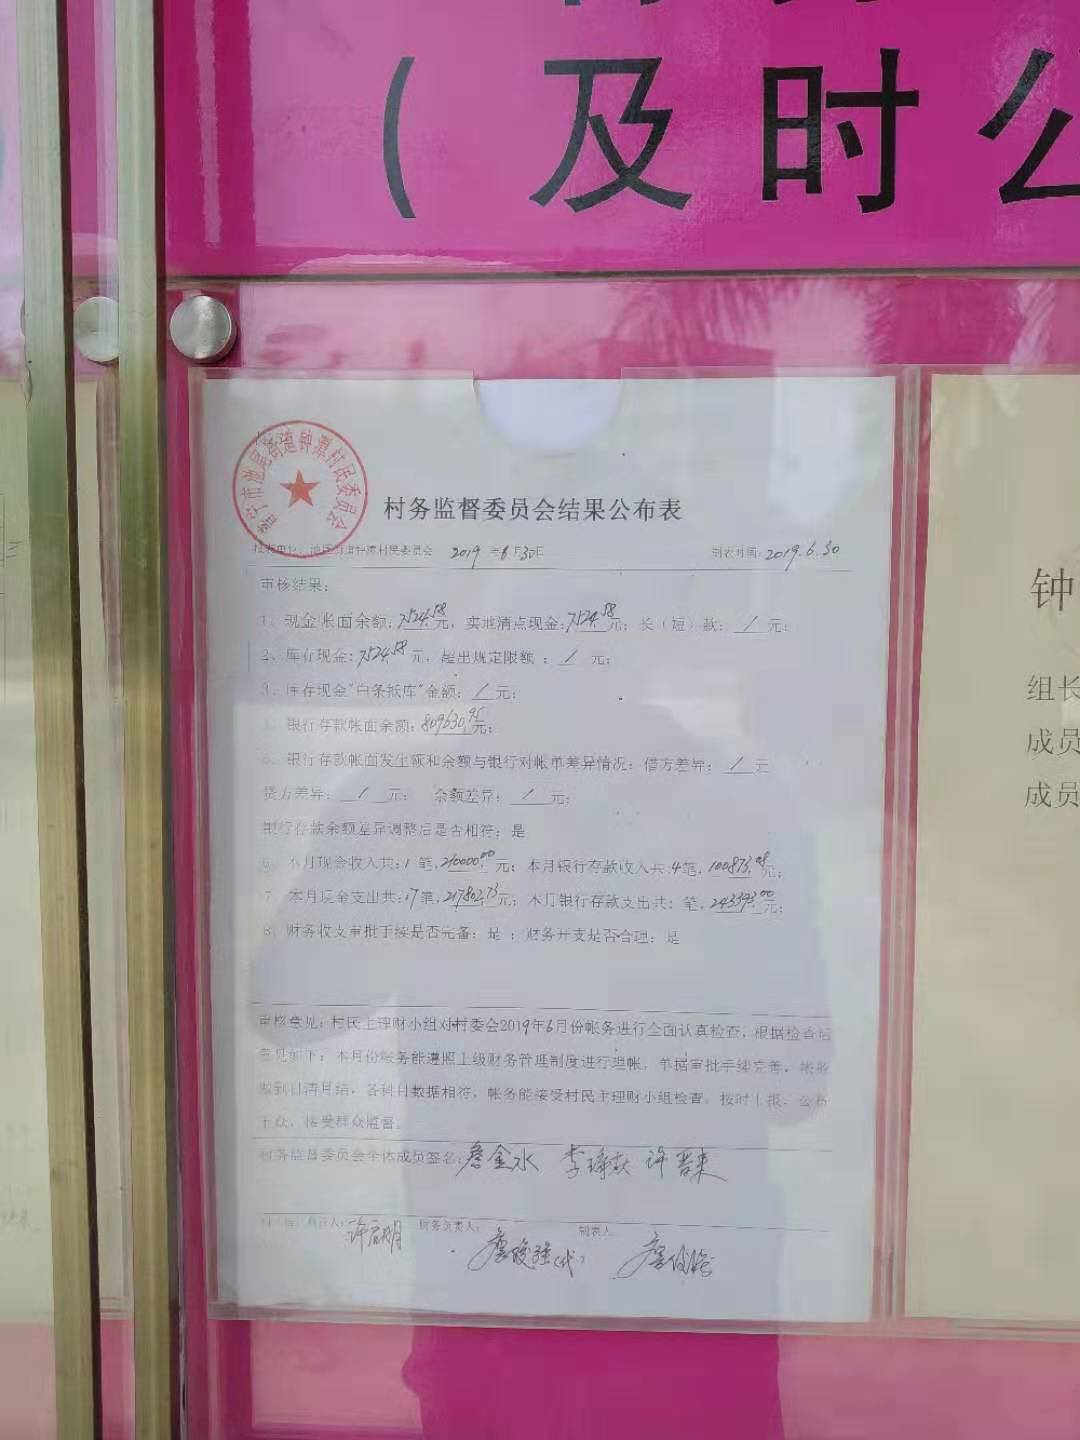 （及时公
普宁市池尾街道钟潭村民委员会
村务监督委员会结果公布表
池尾街道钟潭村民委员会 2019年6月30日 制表时间：2019.6.30
审核结果：
1、现金帐面余额：7524.58元，实地清点现金：7524.58元；长（短）款：/元；
2、库存现金：7524.58元，超出规定限额：/元；
3、库存现金“白条抵库”金额：/元；
4、银行存款帐面余额：809630.95元；
5、银行存款帐面发生额和余额与银行对帐单差异情况：借方差异：/元
贷方差异：/元；余额差异：/元；
银行存款余额差异调整后是否相符：是
6、本月现金收入共：1笔，210000.00元；本月银行存款收入共：4笔，100873.08元；
7、本月现金支出共：17笔，217802.73元；本月银行存款支出共：笔，243393.00元；
8、财务收支审批手续是否完备：是；财务开支是否合理：是
审核意见：村民主理财小组对村委会2019年6月份帐务进行全面认真检查，根据检查后
意见如下：本月份帐务能遵照上级财务管理制度进行理帐，单据审批手续完善，帐务
做到日清月结，各科目数据相符，帐务能接受村民主理财小组检查，按时上报、公布
于众，接受群众监督。
村务监督委员会全体成员签名：詹金水 李 许
负责人： 财务负责人： 制表人
许 明 詹 （代） 詹
钟
组长
成员
成员